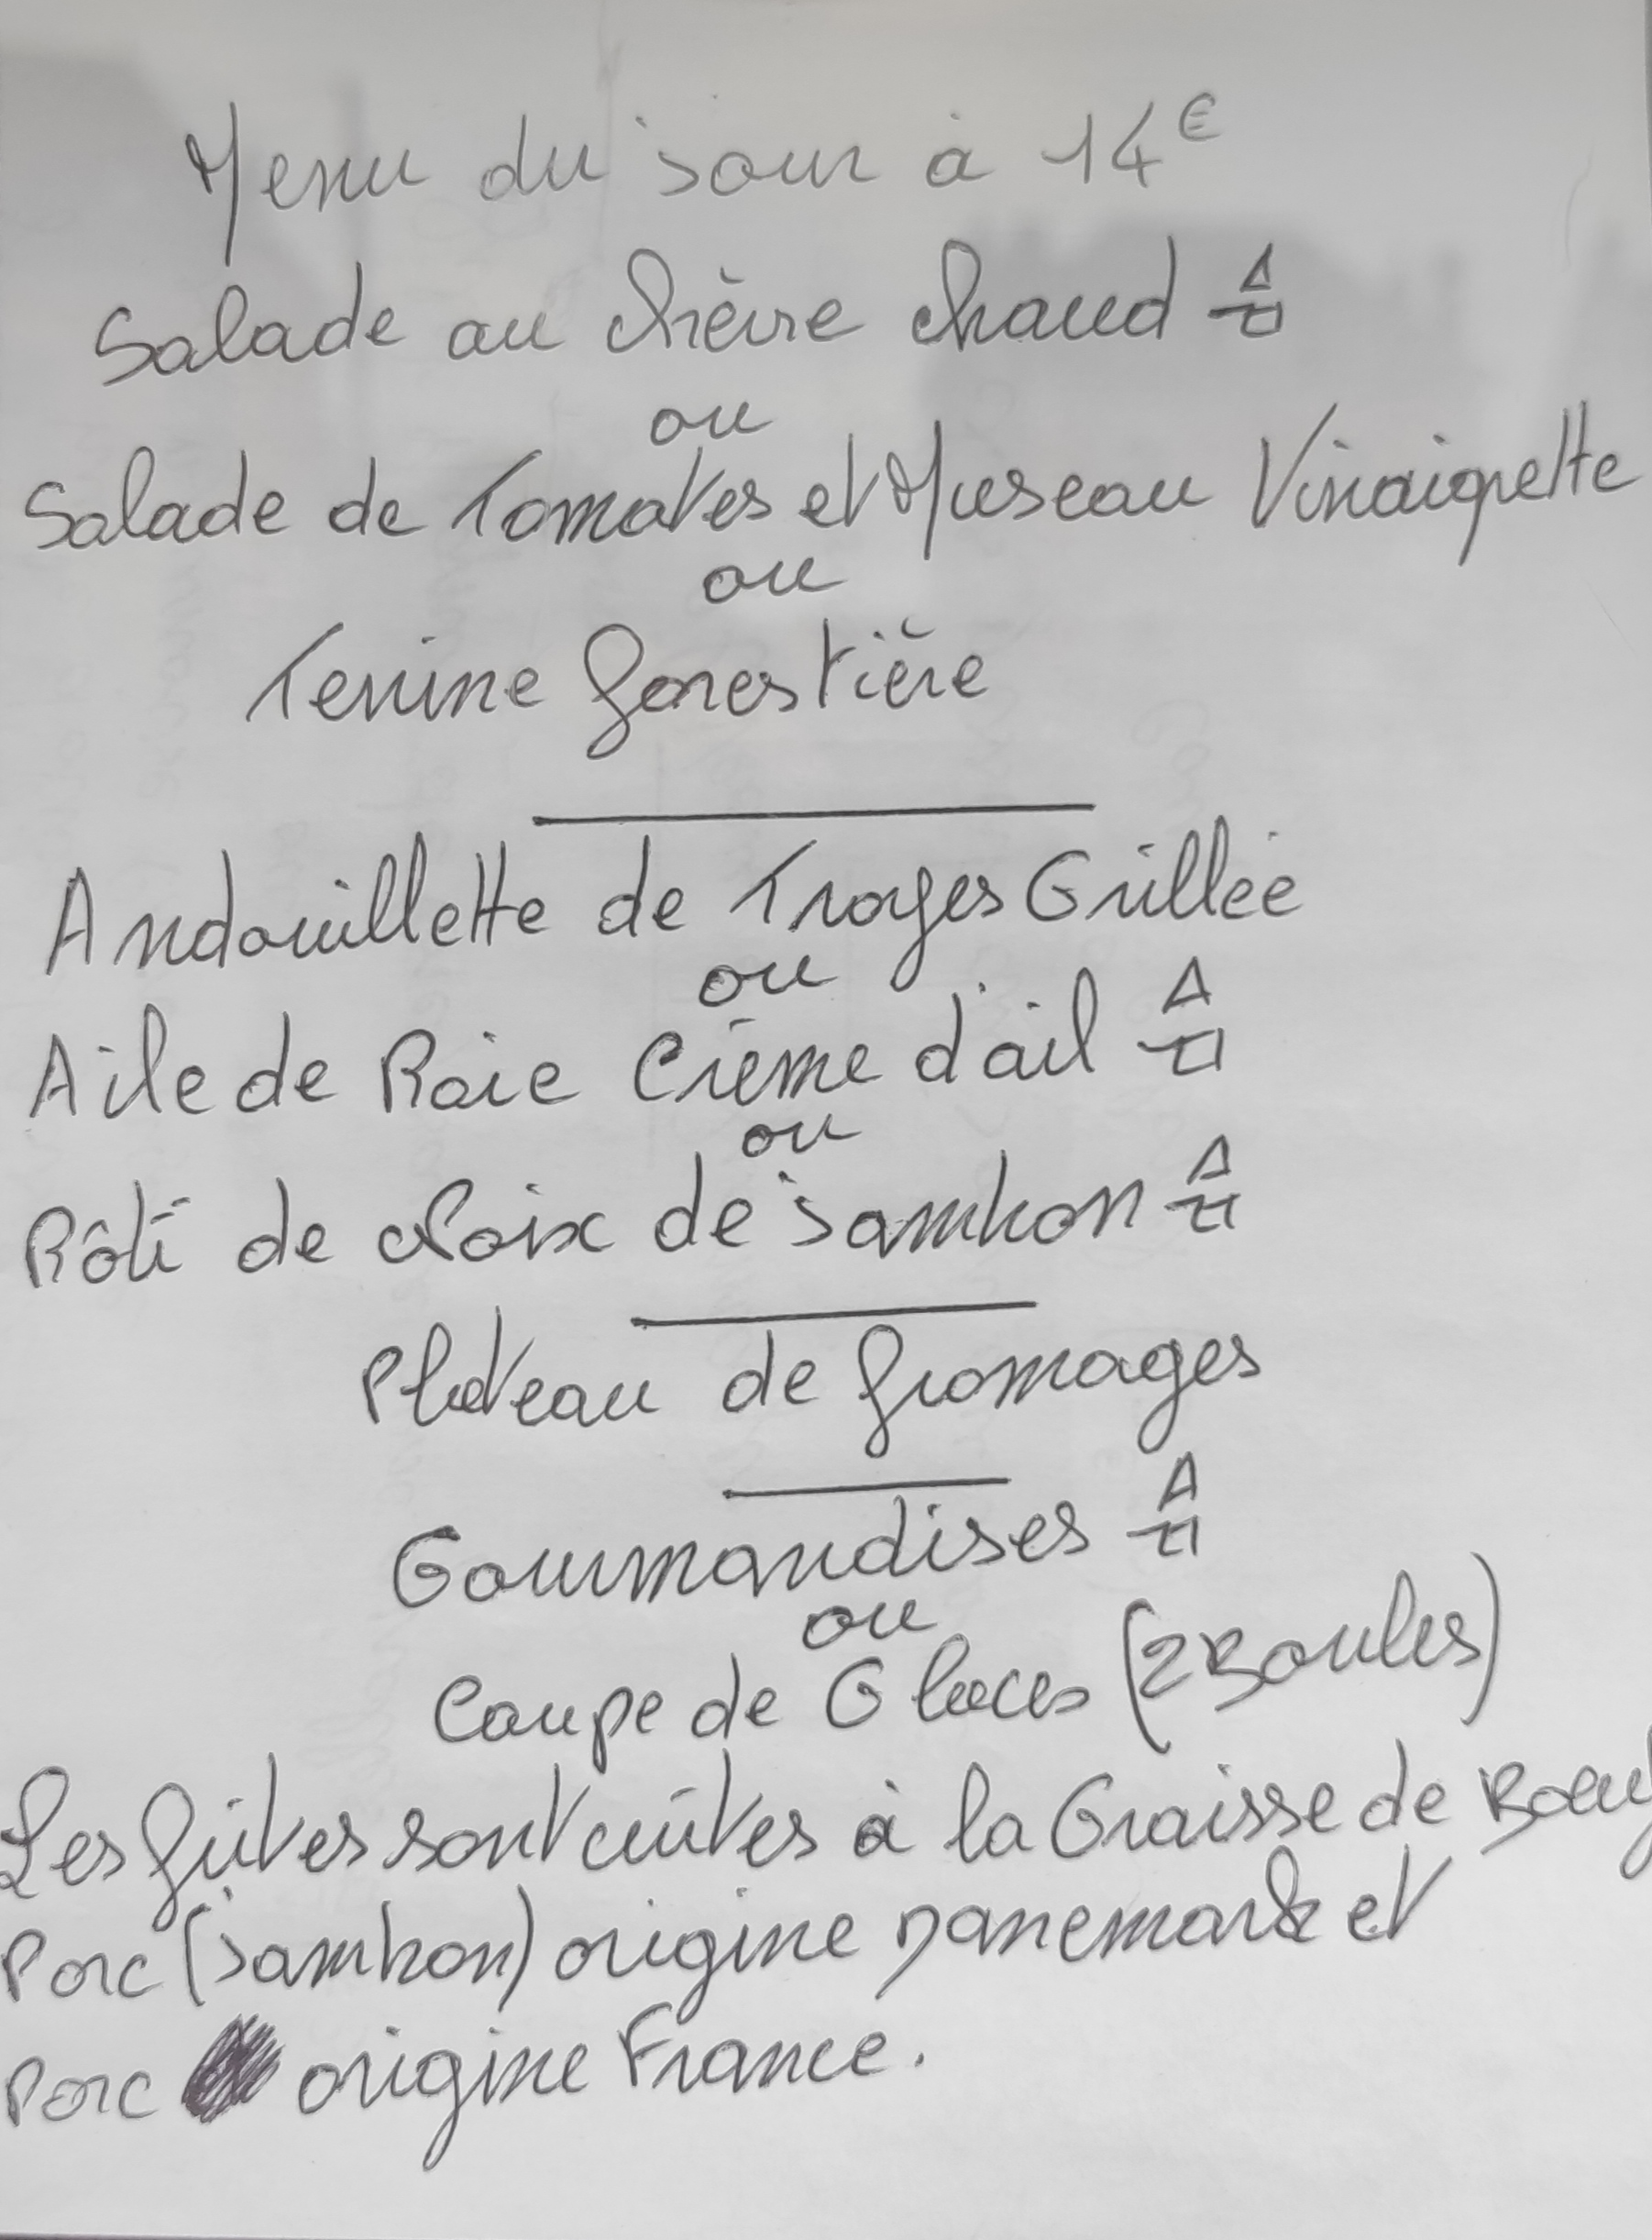 Menu du jour à 14€
Salade au chèvre chaud
ou
Salade de Tomates et Museau Vinaigrette
ou
Terrine forestière
Andouillette de Troyes Grillée
ou
Aile de Raie Crème d'ail
ou
Rôti de Noix de jambon
Plateau de fromages
Gourmandises
ou
Coupe de Glaces (2 Boules)
Les frites sont cuites à la Graisse de Boeuf
Porc (jambon) origine Danemark et
Porc origine France.